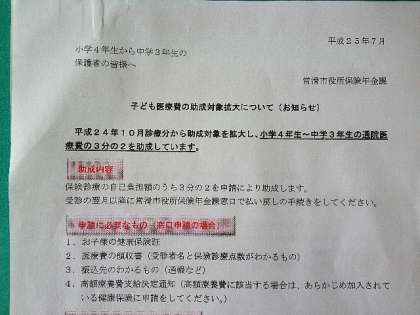 平成25年7月
小学4年生から中学3年生の
保護者の皆様へ
常滑市役所保険年金課
子ども医療費の助成対象拡大について(お知らせ)
平成24年10月診療分から助成対象を拡大し、小学4年生～中学3年生の通院医
療費の3分の2を助成しています。
助成内容
保険診療の自己負担額のうち3分の2を申請により助成します。
受診の翌月以降に常滑市役所保険年金課窓口で払い戻しの手続きをしてください。
申請に必要なもの(窓口申請の場合)
1．お子様の健康保険証
2．医療費の領収書(受診者名と保険診療点数がわかるもの)
3．振込先のわかるもの(通帳など)
4．高額療養費支給決定通知(高額療養費に該当する場合は、あらかじめ加入されて
いる健康保険に申請をしてください。)